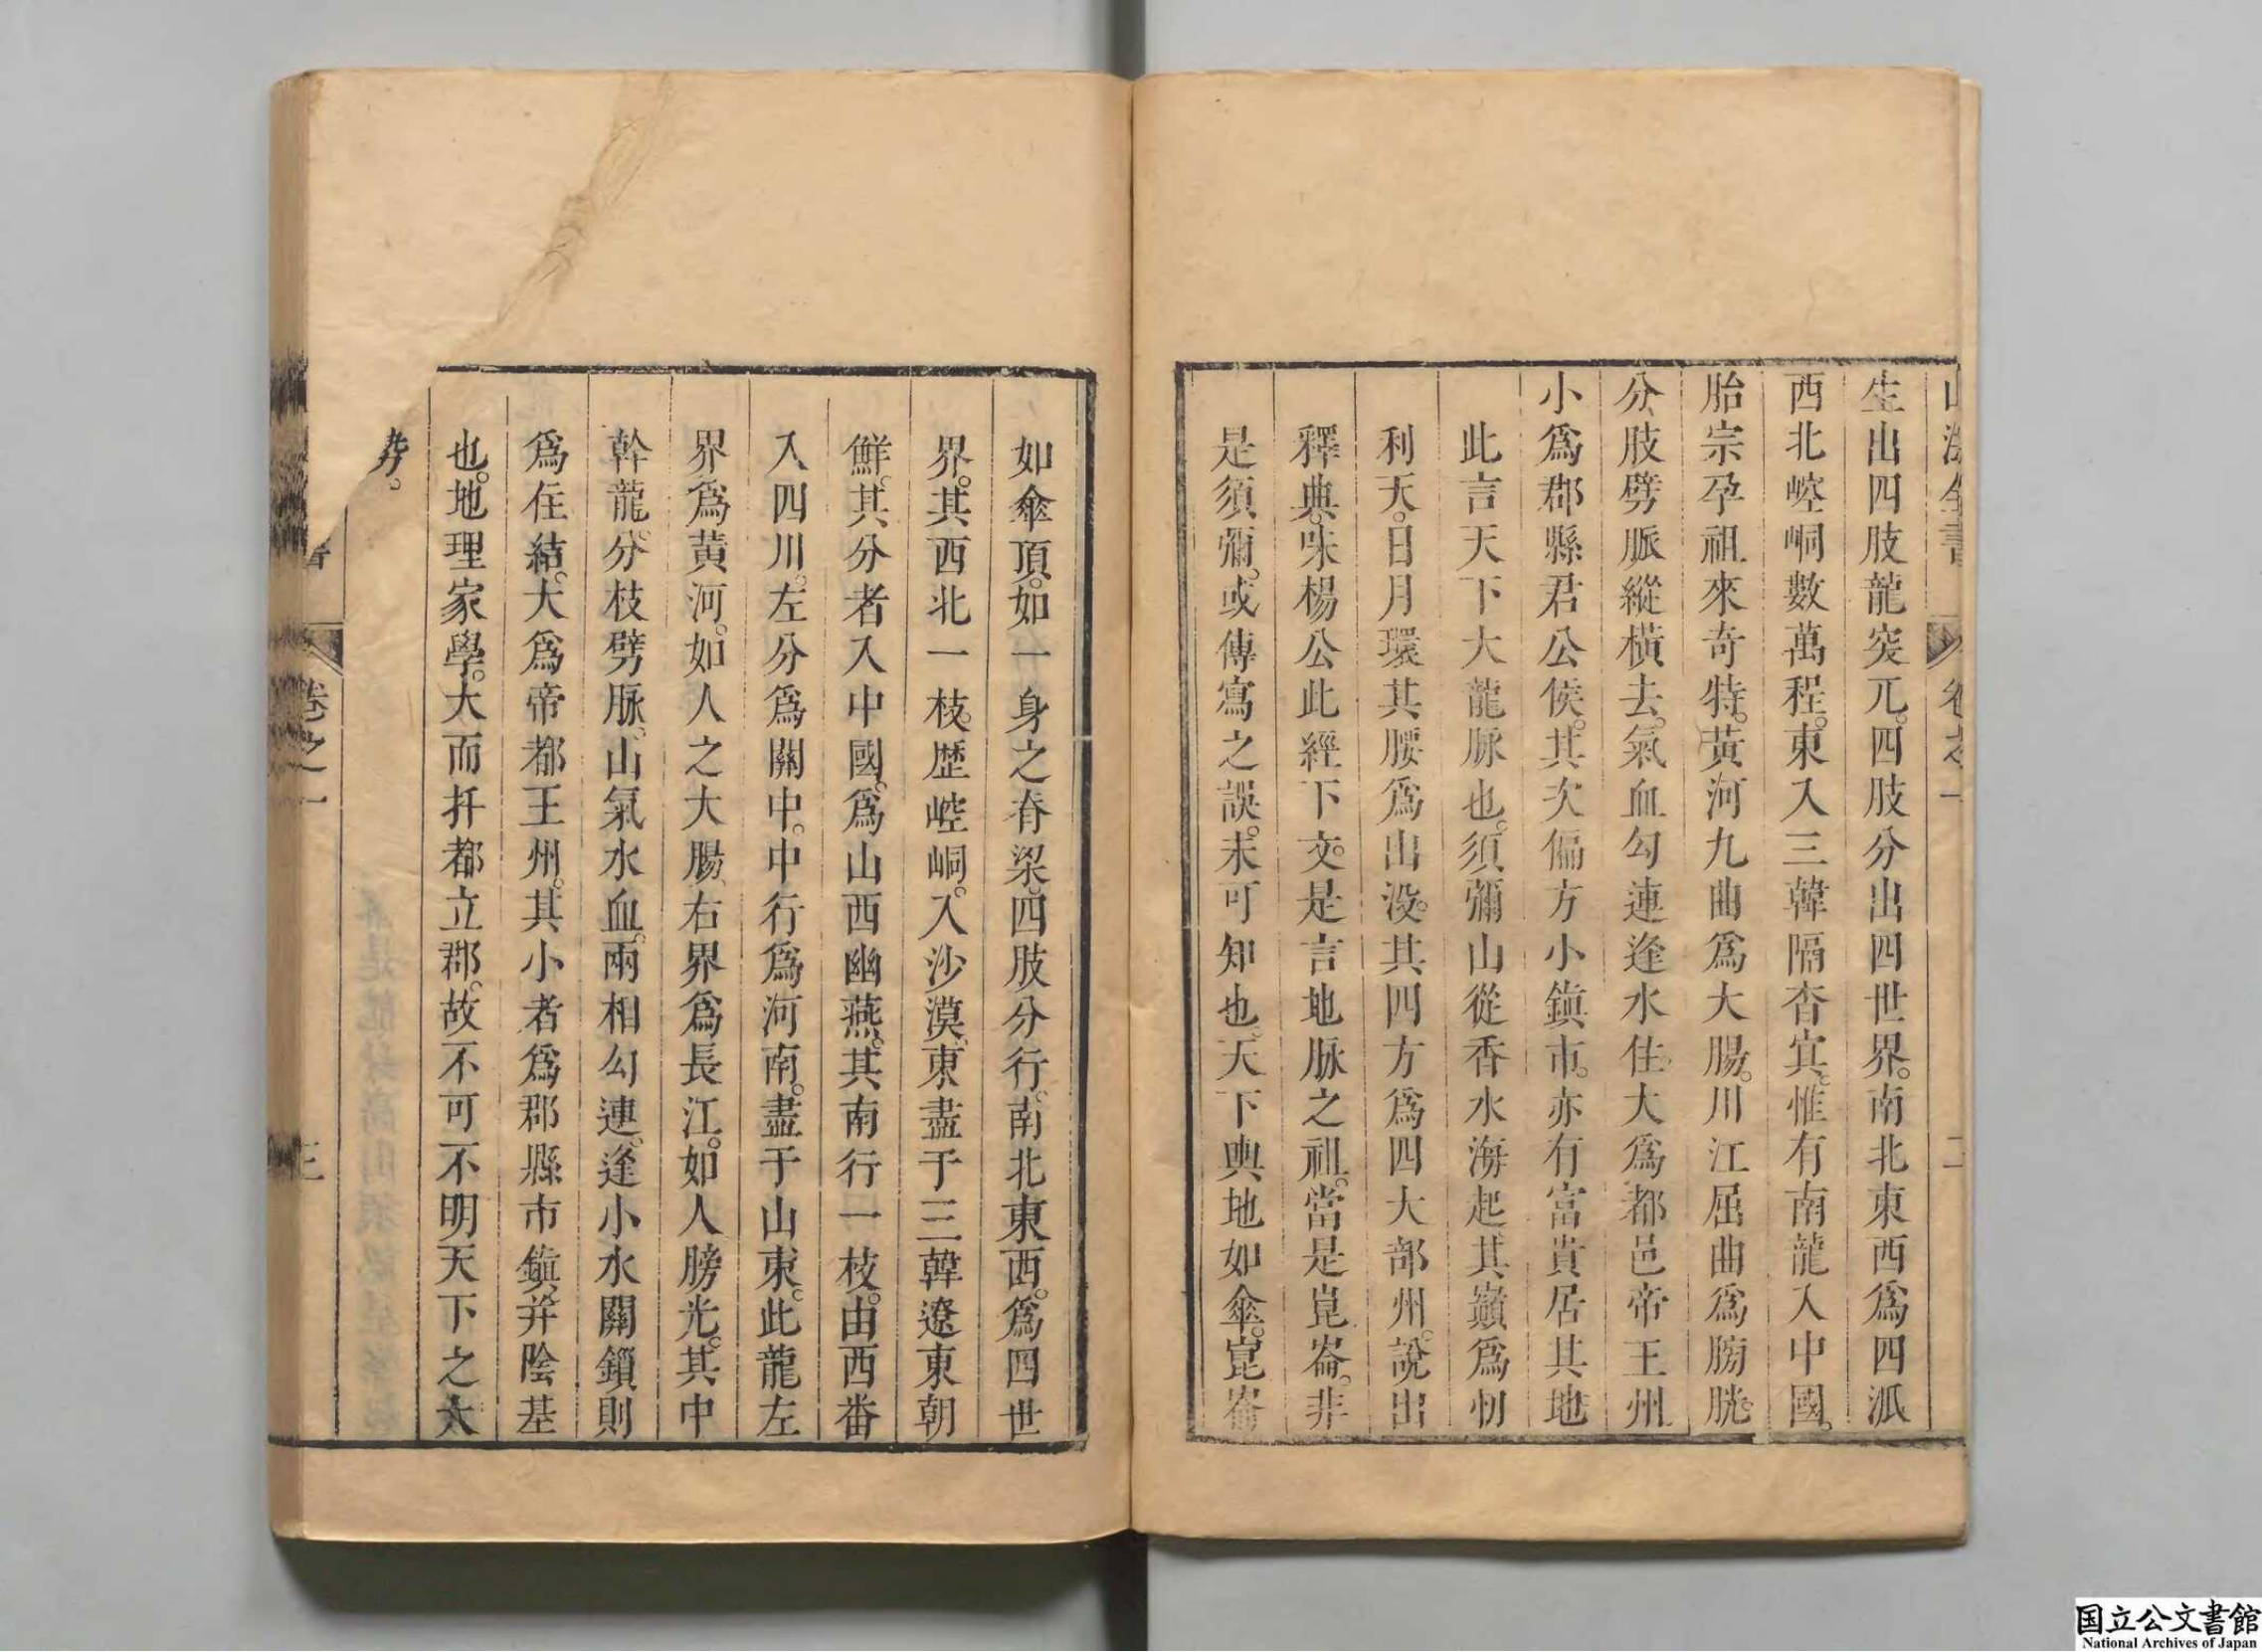 生出四肢龍突兀。四肢分出四世界。南北東西爲四派
西北崆峒數萬程。東入三韓隔杳㝠。惟有南龍入中國。
胎宗孕祖來奇特。黃河九曲爲大腸。川江屈曲爲膀胱。
分肢劈脈縱橫去。氣血勾連逢水住。大爲都邑帝王州
小爲郡縣君公侯。其次偏方小鎮市。亦有富貴居其地
此言天下大龍脉也。須彌山從香水海起。其巔爲忉
利天。日月環其腰爲出没。其四方爲四大部州。說出
釋典。味楊公此經下文。是言地脉之祖。當是崑崙。非
是須彌。或傳寫之誤。未可知也。天下輿地如傘。崑崙
如傘頂。如一身之脊梁。四肢分行。南北東西。爲四世
界。其西北一枝。歷崆峒。入沙漠。東盡于三韓遼東朝
鮮。其分者入中國。爲山西幽燕。其南行一枝。由西畨
入四川。左分爲關中。中行爲河南。盡于山東。此龍左
界爲黃河。如人之大腸。右界爲長江。如人膀光。其中
幹龍。分枝劈脉。山氣水血。兩相勾連。逢小水關鎖則
爲住結。大爲帝都王州。其小者爲郡縣市鎮。并陰基
也。地理家學。大而扦都立郡。故不可不明天下之大
卷之一
三
国立公文書館
National Archives of Japan